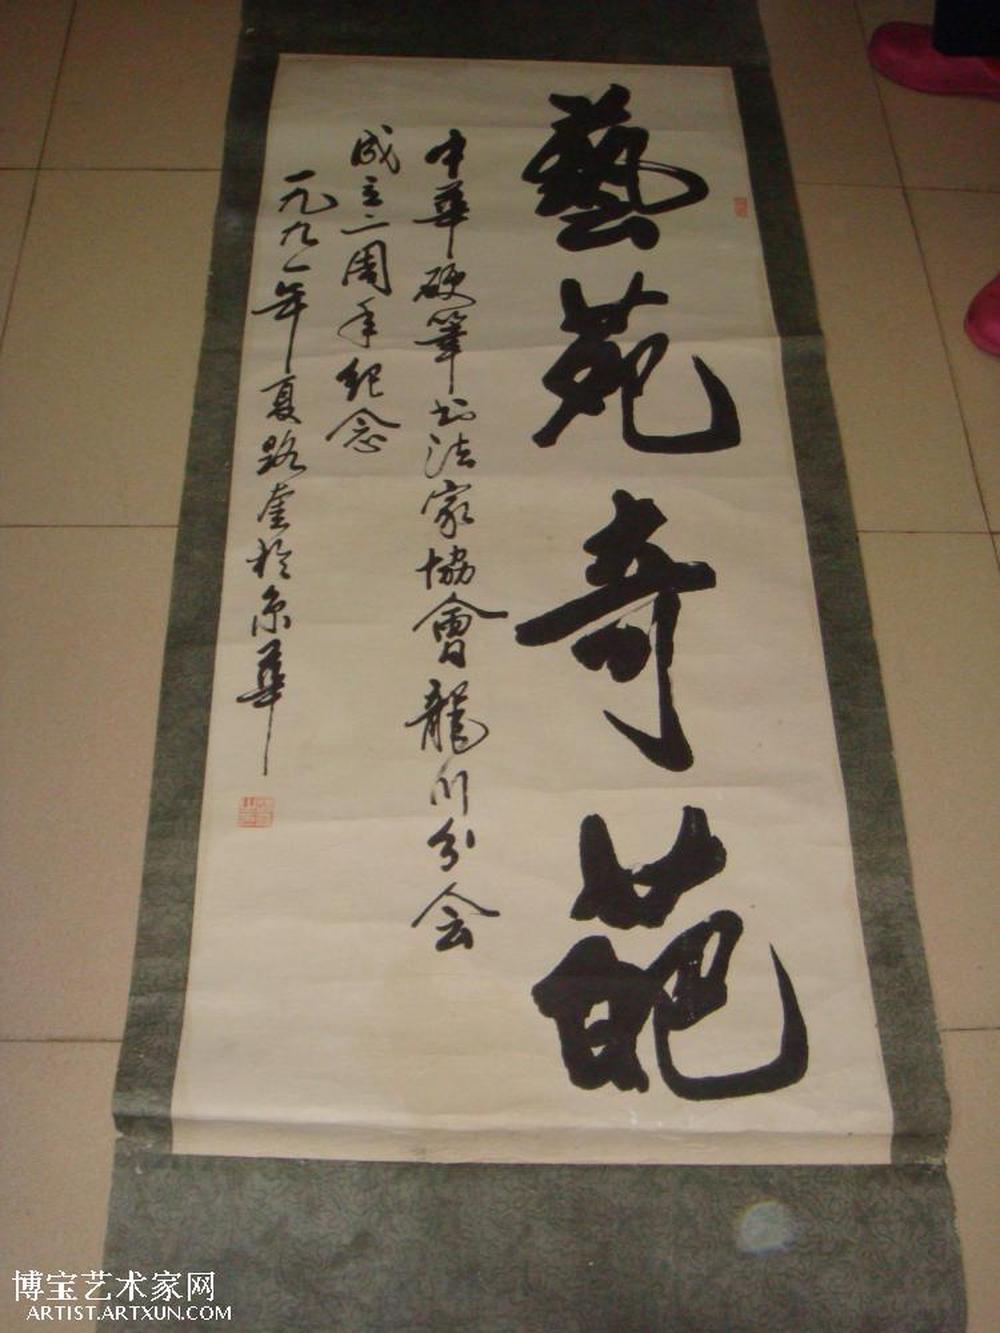 藝苑奇葩
中華硬筆书法家協會龍川分会
成立二周年纪念
一九九一年夏路奎於京華
博宝艺术家网
ARTIST.ARTXUN.COM